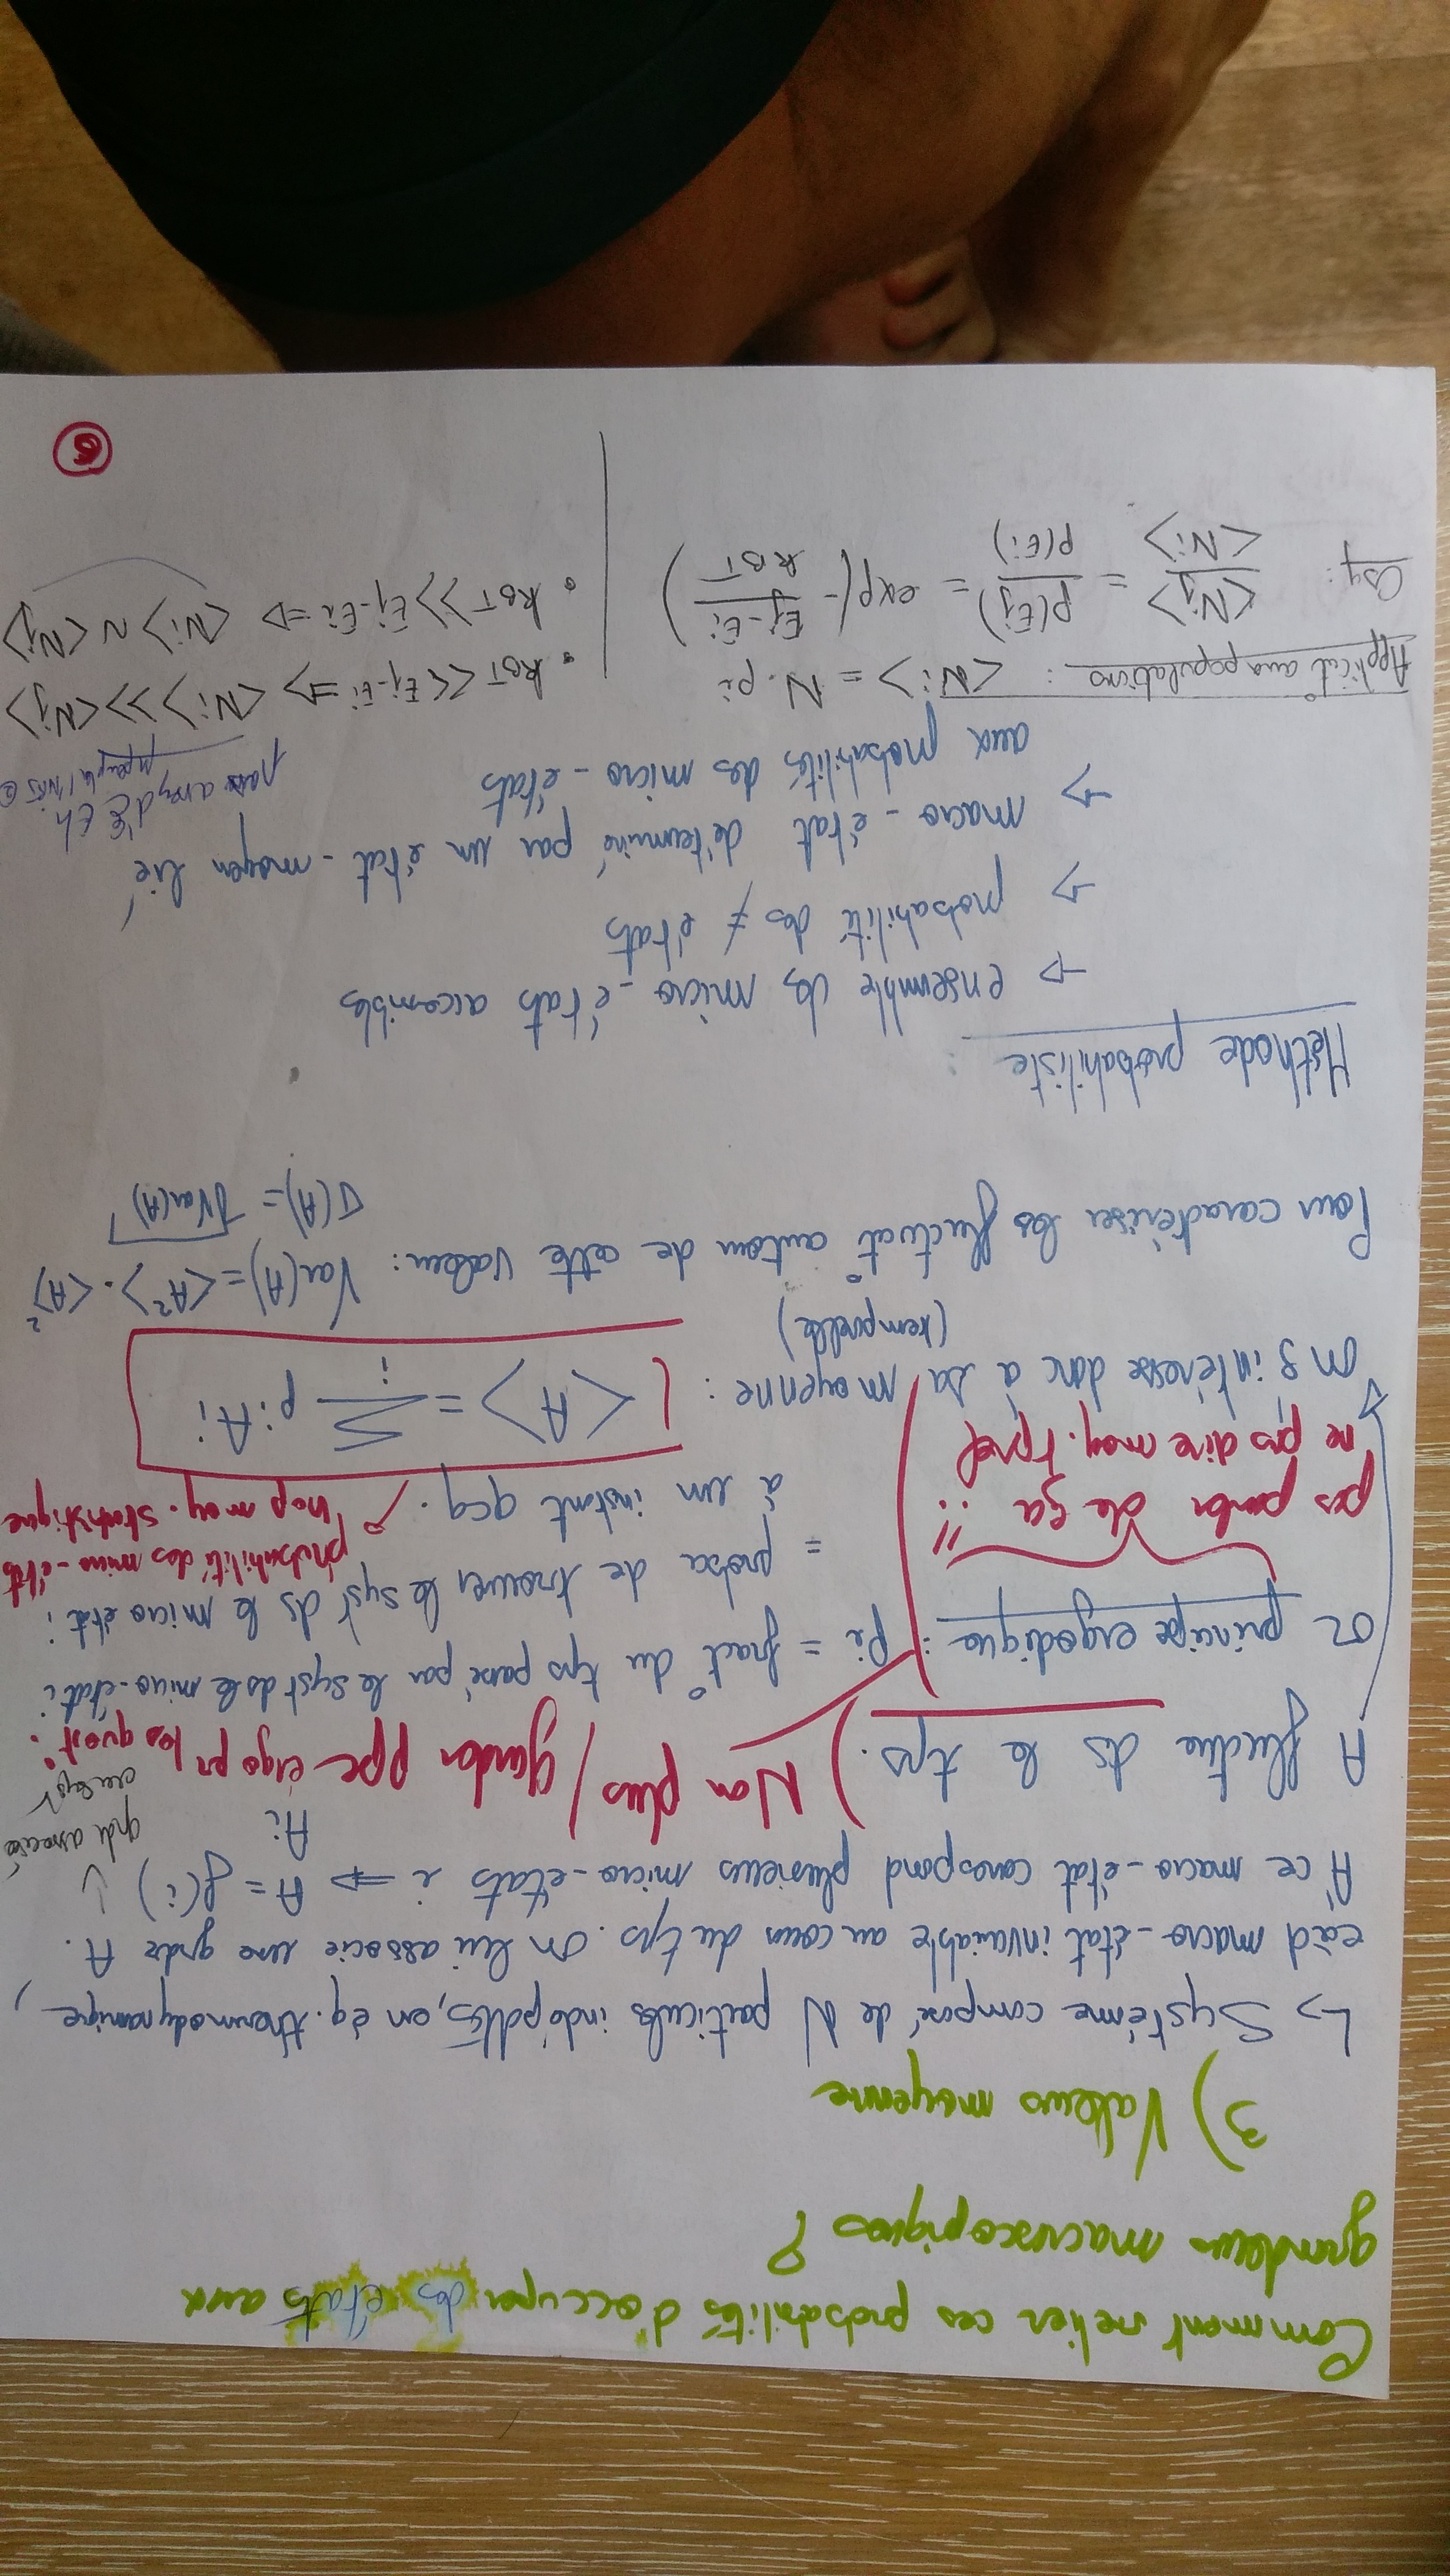 Comment relier ces probabilités d'occuper des états aux
grandeurs macroscopiques ?
3) Valeurs moyenne
↳ Système composé de N particules indépdtes, en éq. thermodynamique,
càd macro-état invariable au cours du tps. On lui associe une grdr A.
À ce macro-état correspond plusieurs micro-états i ⇒ A = f(i)
Ai
grdr associée
A fluctue ds le tps.) Non plus / garder ppe ergo pr les quest°
or principe ergodique : pi = fract° du tps passé par le syst ds le micro-état i
= proba de trouver le syst ds le micro état i
à un instant qcq.
pas parler de ça !!
ne pas dire moy. tprel
probabilité des micro-états
moy. statistique
On s'intéresse donc à sa moyenne : <A> = Σ pi Ai
i
(temporelle)
Pour caractériser les fluctuat° autour de cette valeur : Var(A) = <A²> - <A>²
σ(A) = √Var(A)
Méthode probabiliste :
→ ensemble des micro-états accessibles
→ probabilité des ≠ états
→ macro-état déterminé par un état-moyen lié
aux probabilités des micro-états
Applicat° aux populations : <Ni> = N. pi
Csq : <Nj>/<Ni> = p(Ej)/p(Ei) = exp(- (Ej-Ei)/kBT)
• kBT << Ej-Ei ⇒ <Ni> >> <Nj>
• kBT >> Ej-Ei ⇒ <Ni> ~ <Nj>